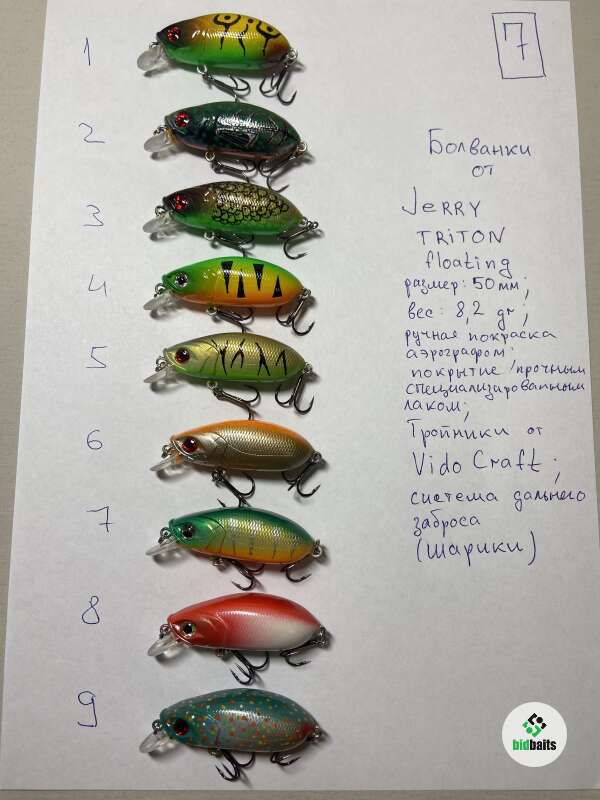 7
1
2
3
4
5
6
7
8
9
Болванки
от
JERRY
TRITON
floating
размер: 50 мм;
вес: 8,2 gr;
ручная покраска
аэрографом;
покрытие прочным
специализированным
лаком;
Тройники от
Vido Craft;
система дальнего
заброса
(шарики)
bidbaits